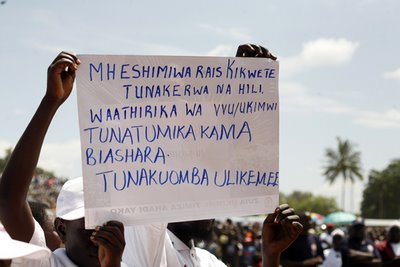 MHESHIMIWA RAIS KIKWETE
TUNAKERWA NA HILI.
WAATHIRIKA WA VVU/UKIMWI
TUNATUMIKA KAMA
BIASHARA.
TUNAKUOMBA ULIKEMEE